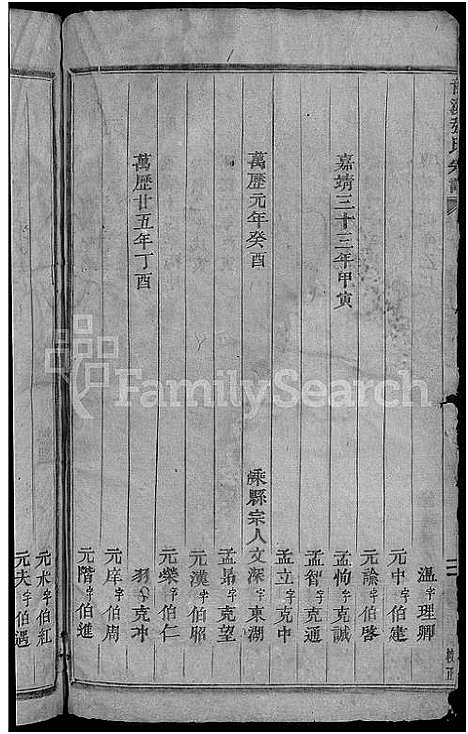 張氏宗譜
三
校正
溫字理卿
元中字伯建
元諭字伯啓
嘉靖三十三年甲寅
孟恂字克誠
孟智字克通
孟立字克中
萬歷元年癸酉
嵊縣宗人文深字東湖
孟昂字克望
元漢字伯昭
元榮字伯仁
萬歷廿五年丁酉
羽字克冲
元庠字伯周
元階字伯進
元水字伯紅
元夫字伯遇
FamilySearch